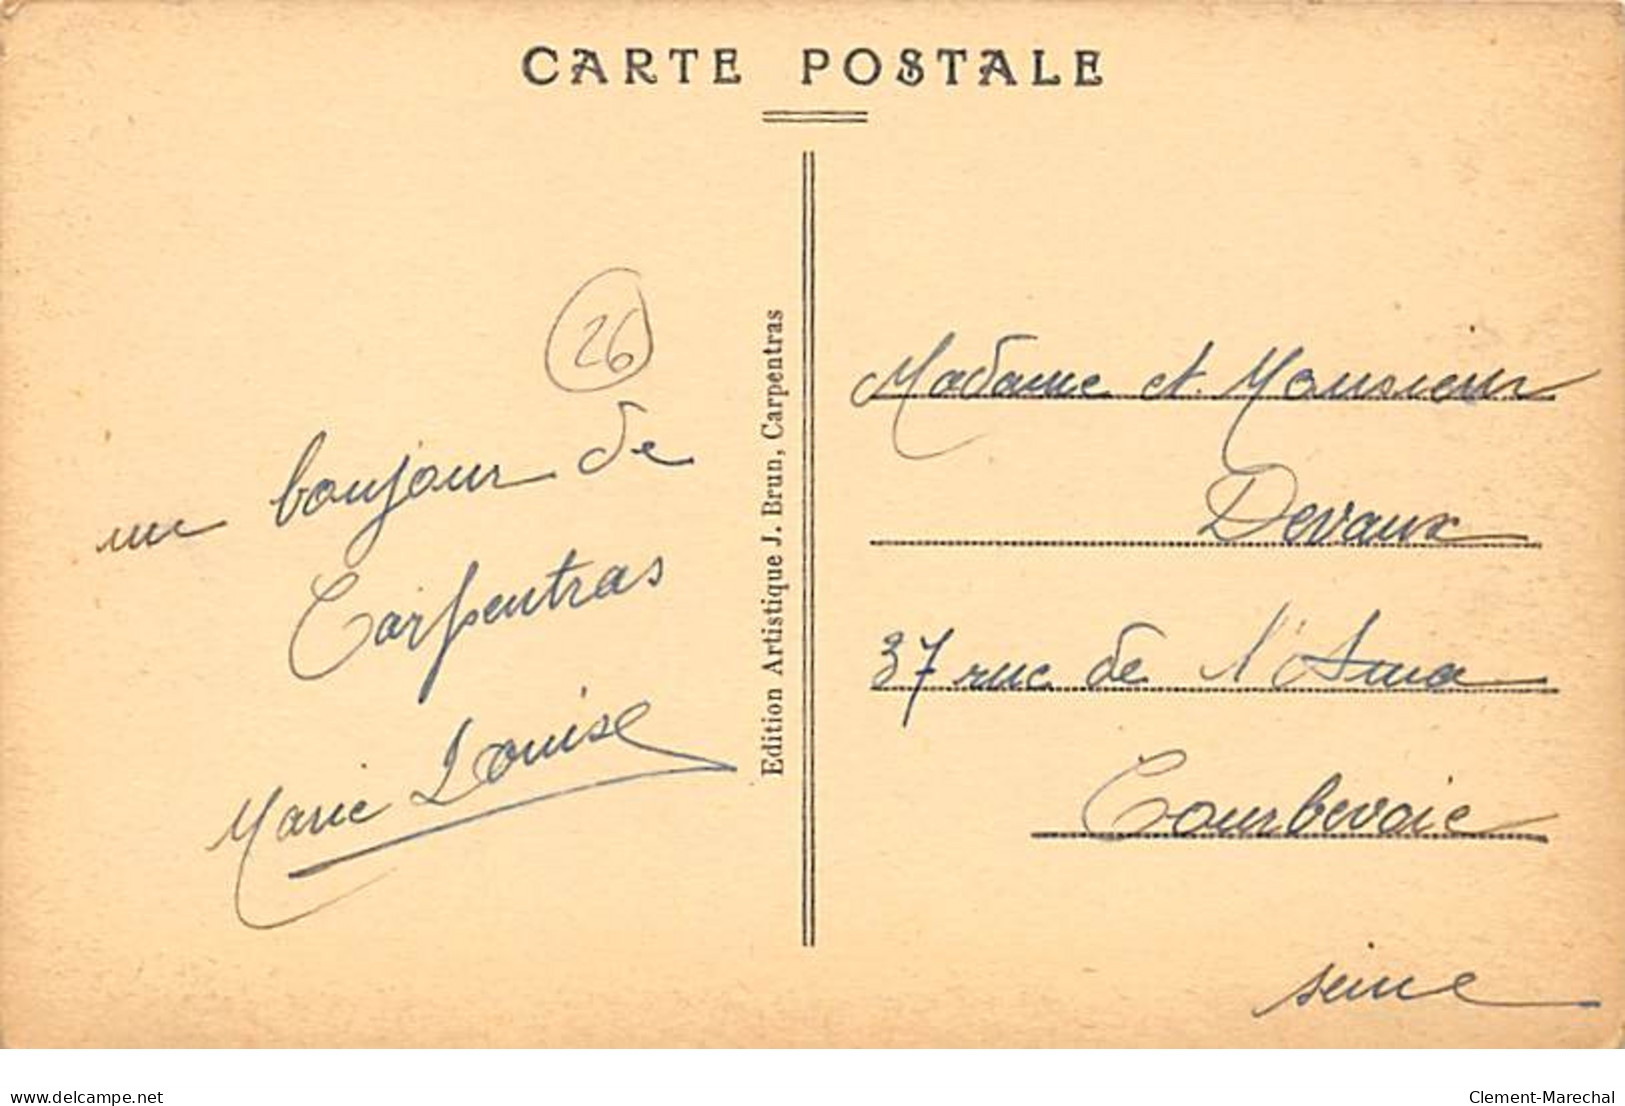 CARTE POSTALE
26
un bonjour de
Carpentras
Marie Louise
Edition Artistique J. Brun, Carpentras
Madame et Monsieur
Devaux
37 rue de l'Alma
Courbevoie
seine
www.delcampe.net
Clement-Marechal